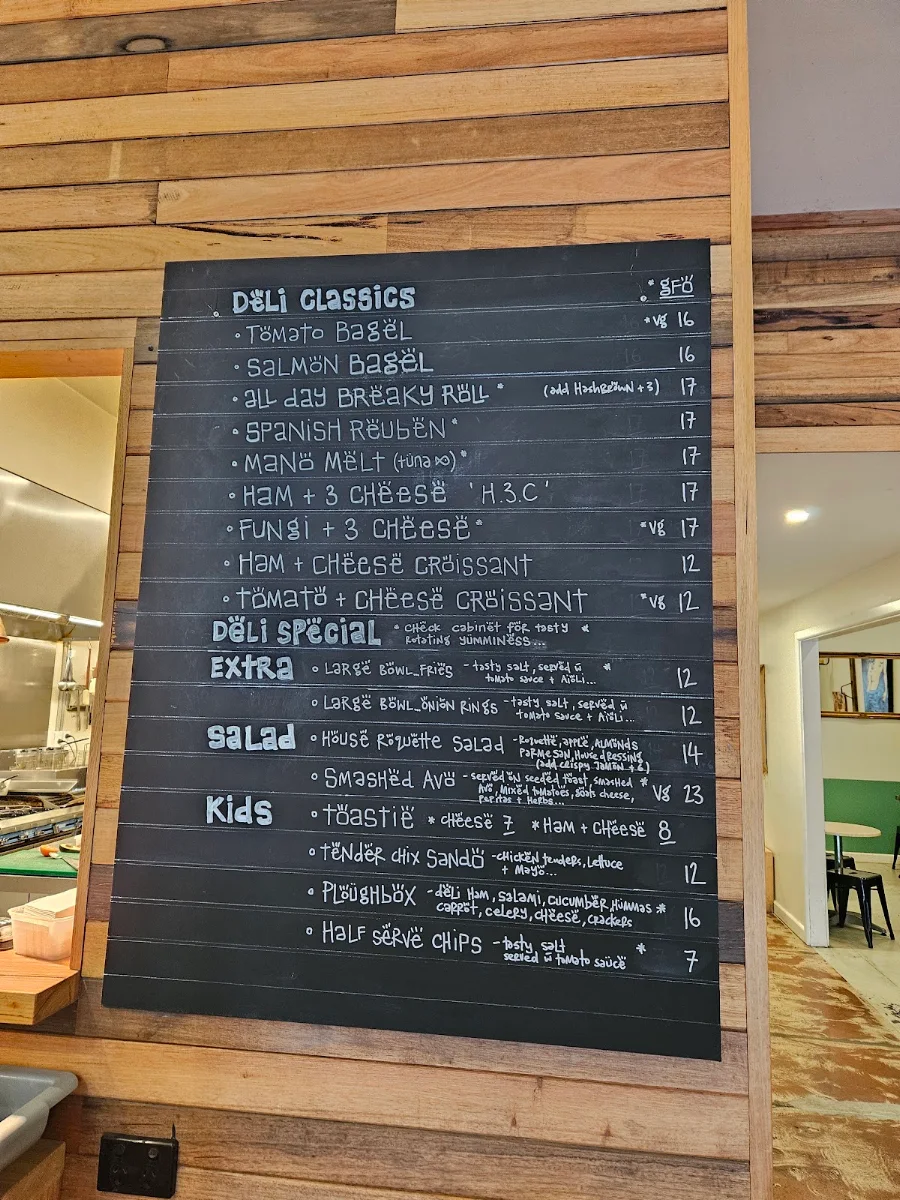 DëLi CLASSiCS * gFÖ
• TÖMATO BAGËL *vg 16
• SALMÖN BAGËL 16
• ALL dAY BRËAKY RÖLL * (add HASHBRÖWN + 3) 17
• SPANiSH RËUbËN * 17
• MANÖ MËLT (tüna ⋈) * 17
• HAM + 3 CHËËSË 'H.3.C' 17
• FUNgi + 3 CHËËSË * *vg 17
• HAM + CHËËSË CRÖiSSANT 12
• TÖMATÖ + CHËËSË CRÖiSSANT *vg 12
DËLi SPËCiAL * CHËCK CAbiNËT FÖR tASTY *
ROtAtiNg YÜMMiNËSS...
EXtRA • LARGË BÖWL_FRiËS - tasty salt, servëd w̎ *
tomato sauce + AiöLi... 12
• LARGË BÖWL_ÖNiÖN RiNgS - tasty salt, servëd w̎
tomato sauce + AiöLi... 12
SALAd • HÖUSË RÖQUËttË SALAd - Röquëttë, AppLË, ALMÖNdS
PARMËSAN, HöuSë dRËSSiNg
(add CRiSPY JAMÖN + 6) 14
• SMASHËd AVÖ - servëd ön seedëd töast, smashëd *
Avö, Mixëd tomatöes, göats cheese,
Pëpitas + Hërbs... Vg 23
KidS • tÖAStiË * CHËËSË 7 * HAM + CHËËSË 8
• tËNdËR CHiX SANdÖ - CHiCKËN tenders, Lëttuce
+ Mayö... 12
• PLÖUgHbÖX - dëLi HAM, SALAMi, CUCUMbËR, HüMMAS *
CARRöt, CËLERY, CHËËSË, CRACKËRS 16
• HALF SËRVË CHiPS - tasty salt *
servëd w̎ tomato sauce 7